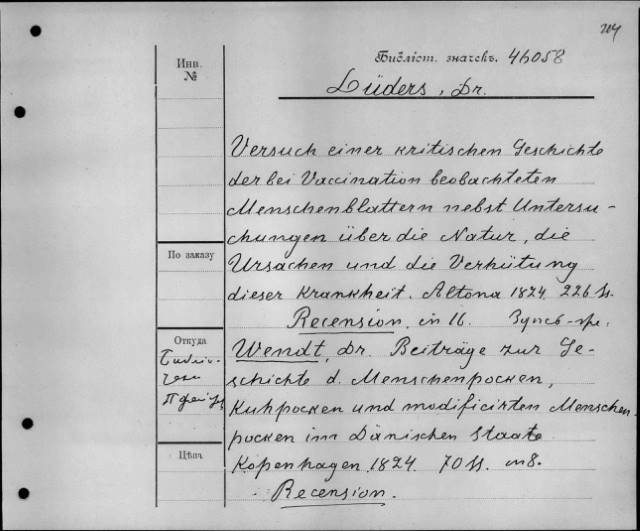 204
Инв.
№
Библіот. значекъ. 46058
Lüders, Dr.
Versuch einer kritischen Geschichte
der bei Vaccination beobachteten
Menschenblattern nebst Untersu-
chungen über die Natur, die
По заказу
Ursachen und die Verhütung
dieser Krankheit. Altona 1824. 226 S.
Recension, in 16.
Откуда
Wendt, Dr. Beiträge zur Ge-
schichte d. Menschenpocken,
Kuhpocken und modificirten Menschen-
pocken im Dänischen Staate
Цѣна
Kopenhagen 1824. 70 S. in 8.
Recension.